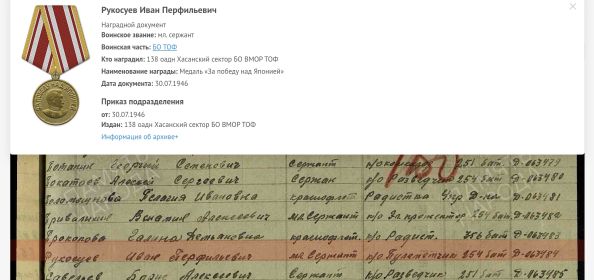 Рукосуев Иван Перфильевич
Наградной документ
Воинское звание: мл. сержант
Воинская часть: БО ТОФ
Кто наградил: 138 оадн Хасанский сектор БО ВМОР ТОФ
Наименование награды: Медаль «За победу над Японией»
Дата документа: 30.07.1946
Приказ подразделения
от: 30.07.1946
Издан: 138 оадн Хасанский сектор БО ВМОР ТОФ
Информация об архиве+
Георгий Семенович Сержант 251 бат Д-063479
Алексей Сергеевич Сержан к/о Разведчик 254 бат Д-063480
Пелагея Ивановна краснофлот. Радистка Упр. Д-на Д-063481
Алексеевич мл Сержант 254 бат Д-063482
Галина Демьяновна краснофлот. к/о Радист. 256 бат Д-063483
Рукосуев Иван Перфильевич мл Сержант к/о Пулеметчик 254 бат Д-063484
Савельев Борис Алексеевич Сержант к/о Разведчик 251 бат Д-063485